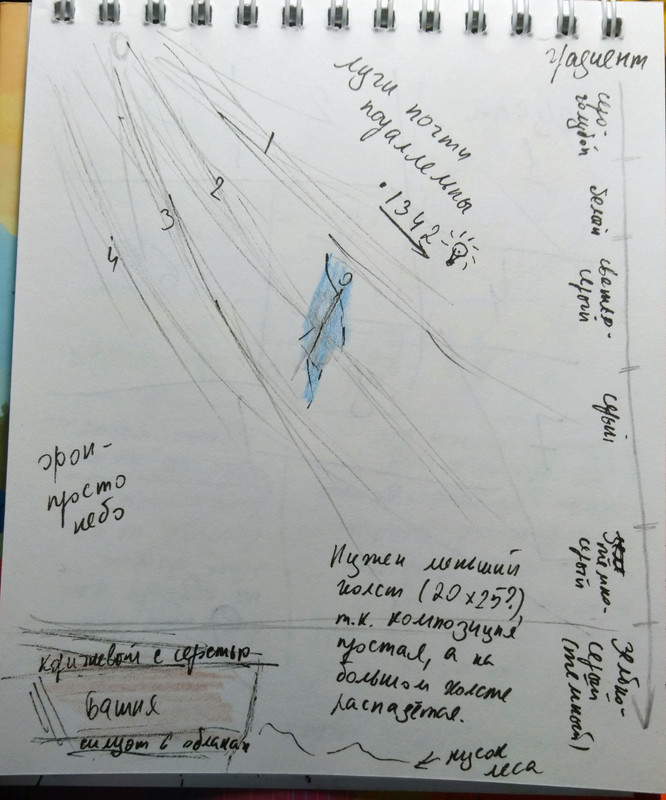 градиент
серо-
голубой
белый
светло-
серый
серый
тёмно-
серый
зелёно-
серый
(тёмный)
лучи почти
параллельны
1342-
1
2
3
4
фон-
просто
небо
Нужен меньший
холст (20x25?)
т.к. композиция
простая, а на
большом холсте
распадётся.
коричневый с серостью
башня
силуэт в облаках
← кусок
леса